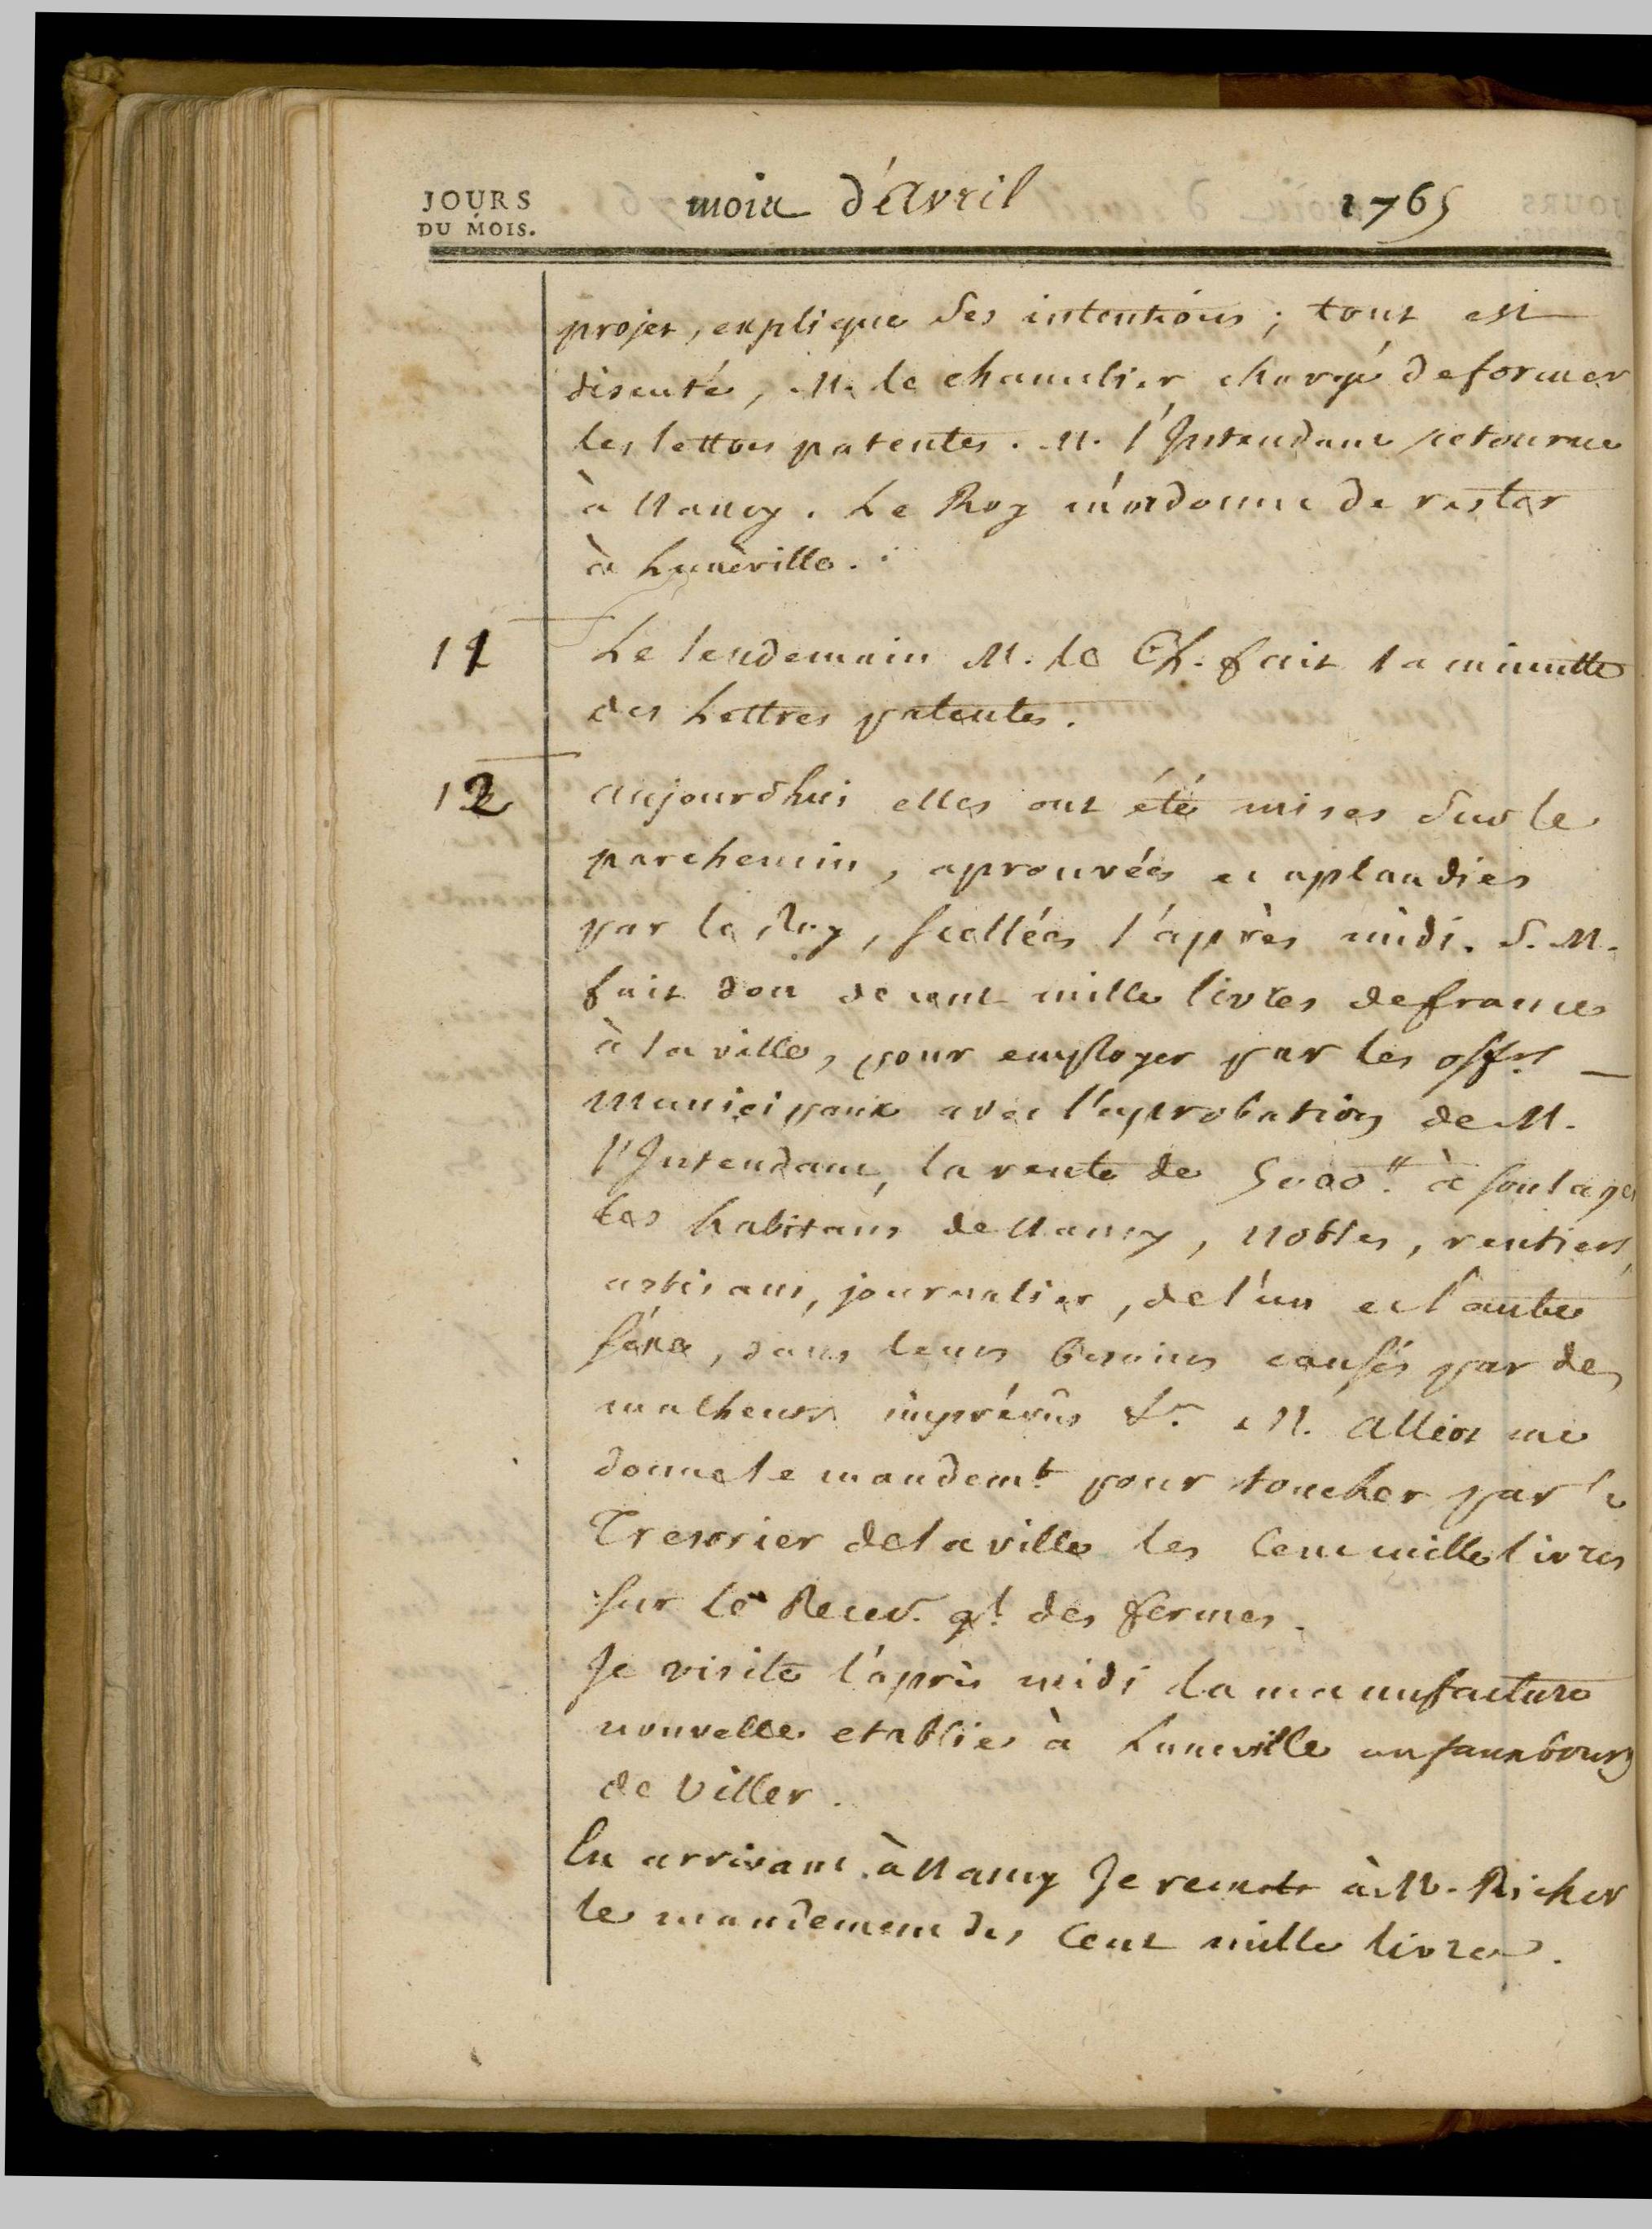 JOURS
DU MOIS.
mois d'Avril 1765
projet, explique ses intentions ; tout est
discuté, M. le chancelier chargé de former
les lettres patentes. M. l'Intendant retourne
à Nancy. Le Roy m'ordonne de rester
à Lunéville.
11 Le lendemain M. le Ch. fait la minutte
des Lettres patentes.
12 aujourdhui elles ont été mises sur le
parchemin, aprouvées et aplaudies
par le Roy, scellées l'après midi. S. M.
fait don de cent mille livres de france
à la ville, pour employer par les offrs
municipaux avec l'aprobation de M.
l'Intendant, la rente de 5000tt à soulager
les habitans de Nancy, nobles, rentiers,
artisans, journalier, de l'un et l'autre
séxe, dans leurs besoins causés par des
malheurs imprévûs &c. M. Alliot me
donne le mandemt pour toucher par le
Tresorier de la ville les Cent mille livres
sur le Recev. gl des fermes.
Je visite l'après midi la manufacture
nouvelle etablie à Luneville au fauxbourg
de Viller.
En arrivant à Nancy Je remets à M. Richer
le mandement des Cent mille livres.